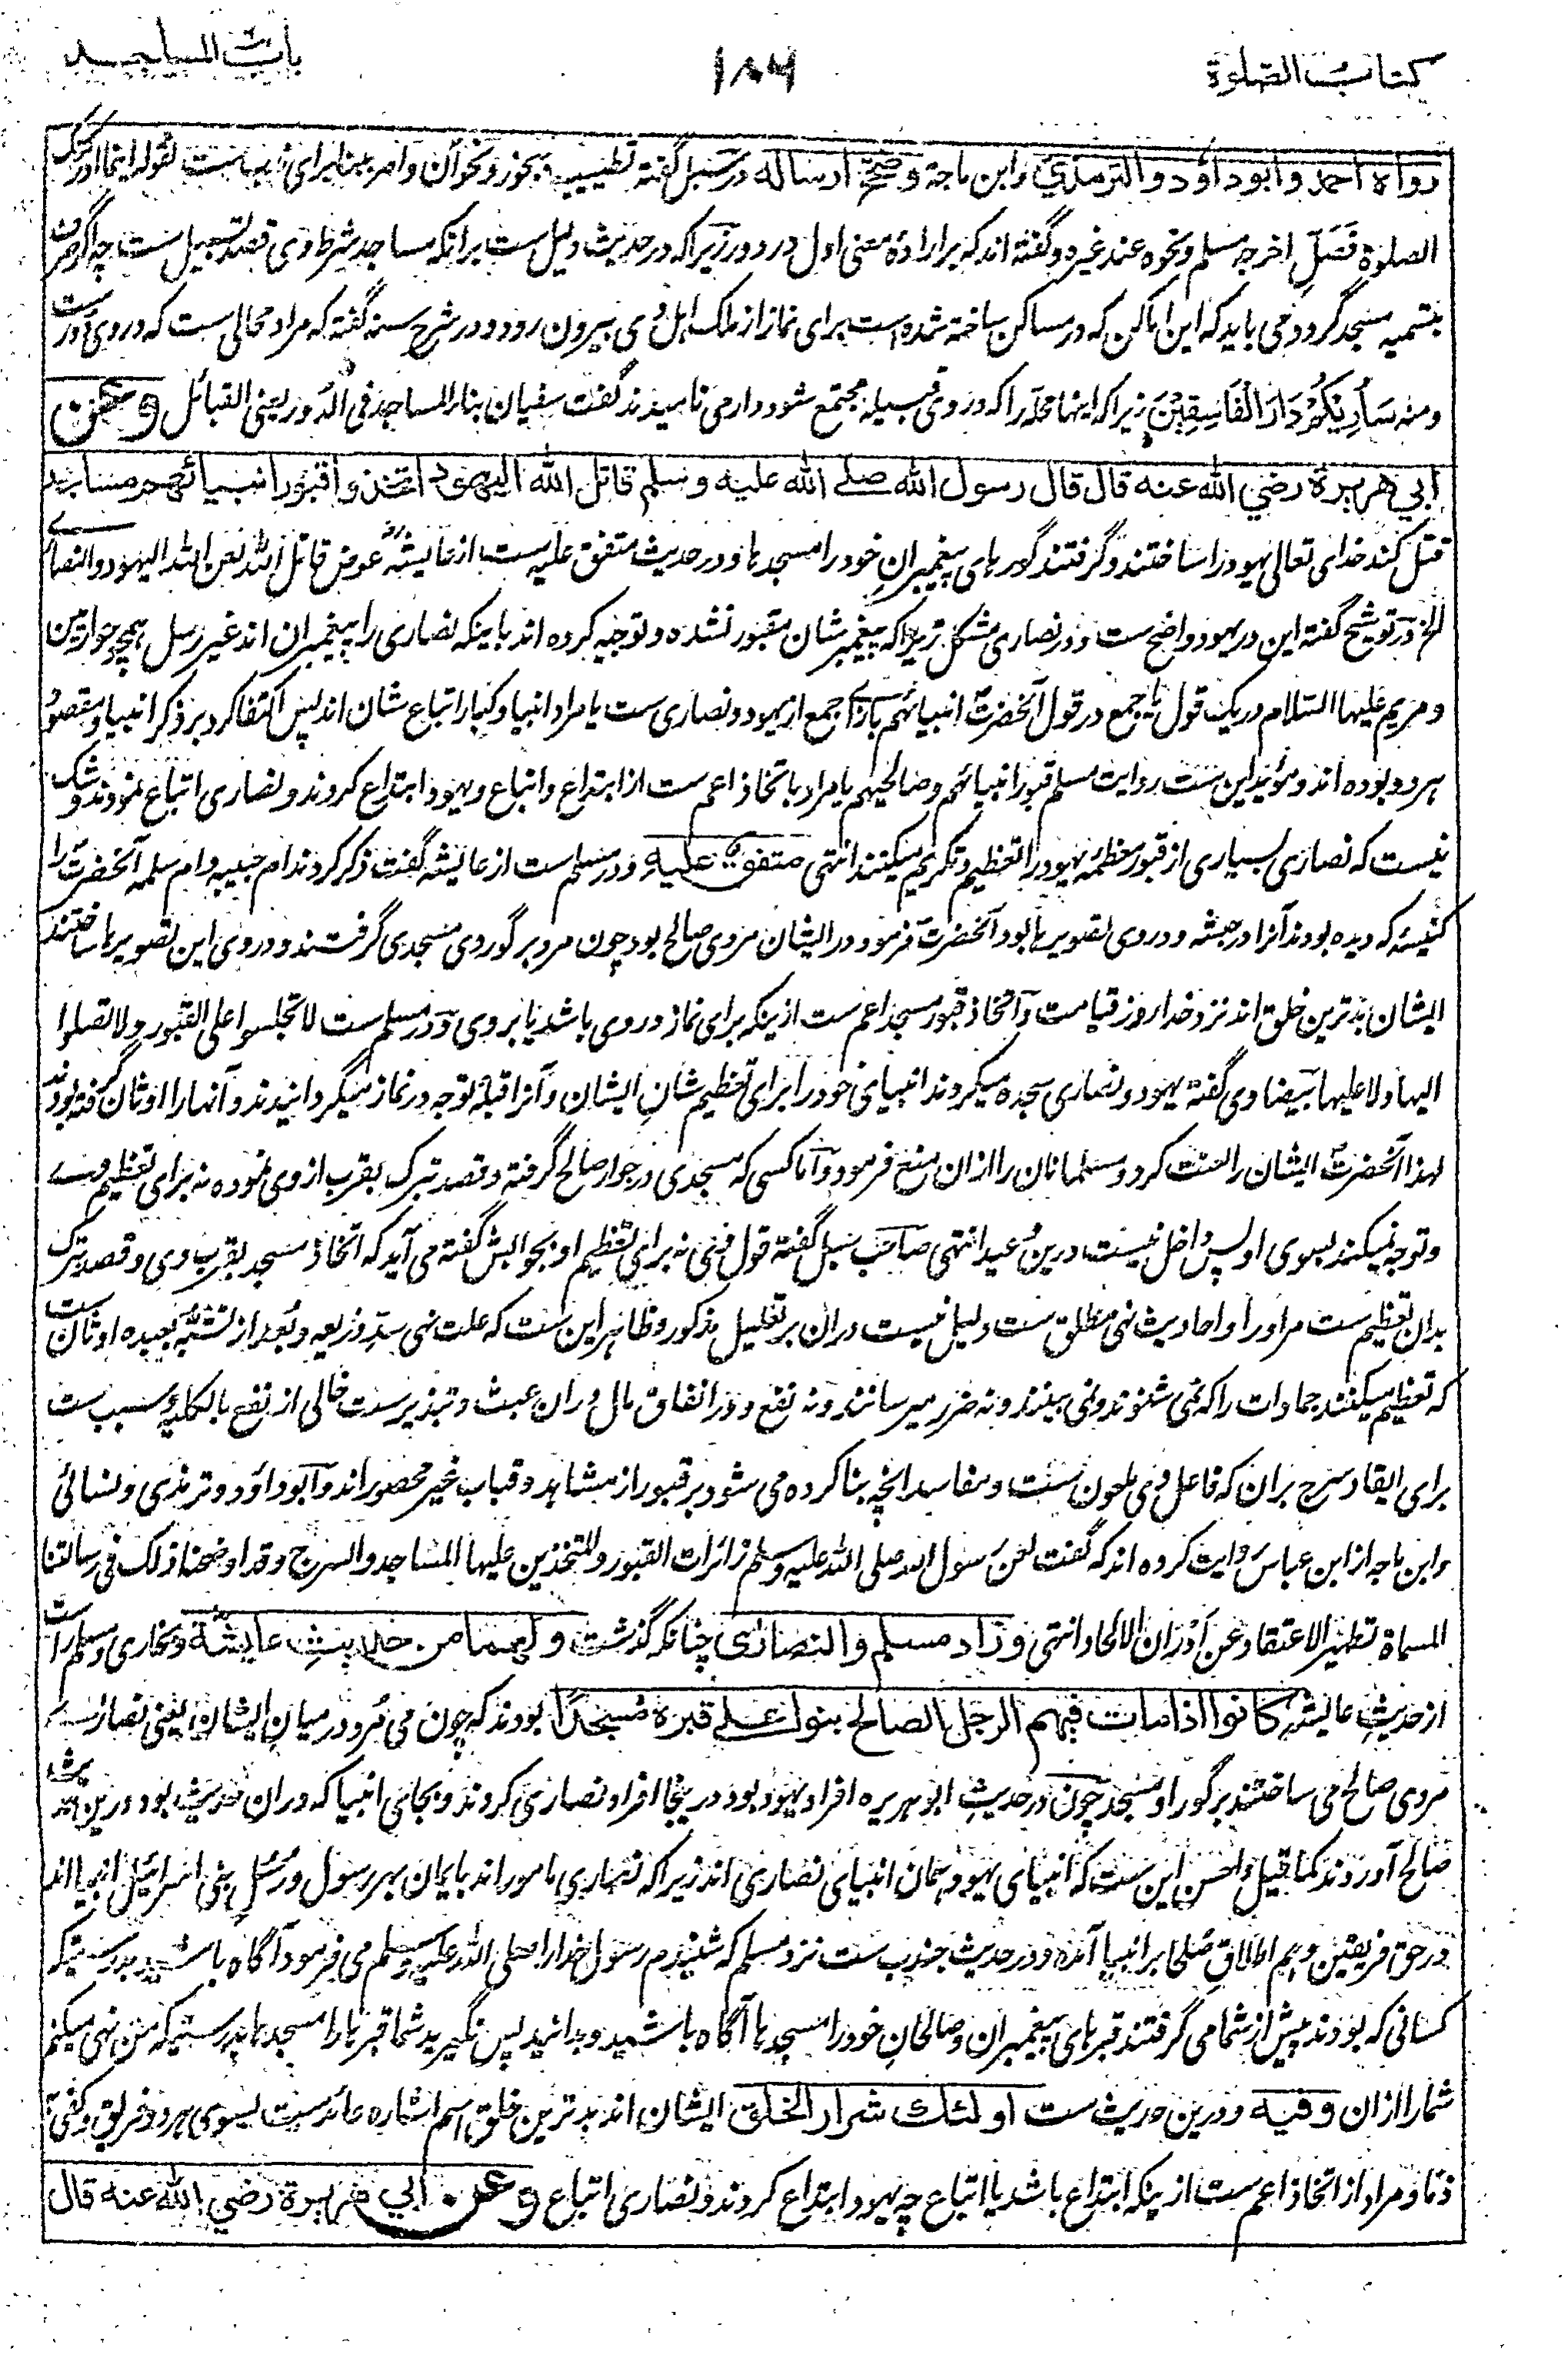 كتاب الصلوة
١٨٦
باب المساجد
رواه احمد وابوداود والترمذي وابن ماجة وصحح ارساله در سبل گفته تطييب ببخور ونحو آن وامر ببنا برای ندب ست لقوله اينما ادركتك
الصلوة فصل اخرجه مسلم ونحوه عند غيره وگفته اند كه بر اراده معنی اول در دور زيرا كه در حديث دليل ست برانكه مساجد شرط وی قصد تسبيل ست چه اگر صرف
بتسميه مسجد گرود می بايد كه اين اماكن كه در مساكن ساخته شده است برای نماز از ملك اهل وی بيرون رود ودر شرح سنه گفته كه مراد محالی ست كه در وی دورست
ومنه سَأُرِيكُمْ دَارَ الْفَاسِقِينَ زيرا كه اينها محله را كه در وی قبيله مجتمع شود دار می ناميدند گفت سفيان بناء المساجد فی الدور يعنی القبائل وعن
ابي هريرة رضي الله عنه قال قال رسول الله صلے الله عليه وسلم قاتل الله اليهود اتخذوا قبور انبيائهم مساجد
قتل كند خدای تعالی يهود را ساختند وگرفتند گورهای پيغمبران خود را مسجدها ودر حديث متفق عليه ست از عايشه عوض قاتل الله لعن الله اليهود والنصارے
الخ در توشيح گفته اين در يهود واضح ست ودر نصاری مشكل زيرا كه پيغمبرشان مقبور نشده وتوجيه كرده اند باينكه نصاری را پيغمبران اند غير رسل همچو حواريين
ومريم عليها السلام در يك قول يا جمع در قول آنحضرت انبيائهم بازاے جمع از يهود ونصاری ست يا مراد انبيا وكبار اتباع شان اند پس اكتفا كرد بر ذكر انبيا ومقصود
هر دو بوده اند ومؤيد اين ست روايت مسلم قبور انبيائهم وصالحيهم يا مراد باتخاذ اعم ست از ابتداع واتباع ويهود ابتداع كردند ونصاری اتباع نمودند وشك
نيست كه نصاری بسياری از قبور معظمه يهود را تعظيم وتكريم ميكنند انتهی متفق عليه ودر مسلم ست از عايشه گفت ذكر كردند ام حبيبه وام سلمه آنحضرت را
كنيسه كه ديده بودند آنرا در حبشه ودر وی تصويرها بود آنحضرت فرمود در ايشان مردی صالح بود چون مرد بر گور وی مسجدی گرفتند ودر وی اين تصويرها ساختند
ايشان بدترين خلق اند نزد خدا روز قيامت واتخاذ قبور مسجد اعم ست ازينكه برای نماز در وی باشد يا بروی ودر مسلم ست لا تجلسوا علی القبور ولا تصلوا
اليها ولا عليها بيضاوی گفته يهود ونصاری سجده ميكردند انبيای خود را برای تعظيم شان ايشان وآنرا قبله توجه در نماز ميگردانيدند وآنها را اوثان گرفته بودند
لهذا آنحضرت ايشان را لعنت كرد ومسلمانان را ازان منع فرمود واما كسی كه مسجدی در جوار صالح گرفته وقصد تبرك بقرب از وی نموده نه برای تعظيم وے
وتوجه نميكند بسوی او پس داخل نيست درين وعيد انتهی صاحب سبل گفته قول وی نه برای تعظيم او بجوابش گفته می آيد كه اتخاذ مسجد بقرب وی وقصد تبرك
بدان تعظيم ست مر او را واحاديث نهی مطلق ست دليل نيست دران بر تعليل مذكور وظاهر اين ست كه علت نهی سد ذريعه وبُعد از تشبه بعبده اوثان ست
كه تعظيم ميكنند جمادات را كه نمی شنوند ونمی بينند ونه ضرر ميرسانند ونه نفع ودر انفاق مال دران عبث وتبذيرست خالی از نفع بالكليه وسبب ست
برای ايقاد سرج بران كه فاعل وی ملعون ست ومفاسد آنچه بنا كرده می شود بر قبور از مشاهد وقباب غير محصور اند وابوداود وترمذی ونسائی
وابن ماجه از ابن عباس روايت كرده اند كه گفت لعن رسول الله صلی الله عليه وسلم زائرات القبور والمتخذين عليها المساجد والسرج وقد اوضحنا ذلك فی رسالتنا
المسماة تطهير الاعتقاد عن أدران الالحاد انتهی وزاد مسلم والنصارى چنانكه گذشت ولهما من حديث عايشة وبخاری ومسلم راست
از حديث عايشه كانوا اذا مات فيهم الرجل الصالح بنوا على قبره مسجدا بودند كه چون می مُرد در ميان ايشان يعنی نصارے
مردی صالح می ساختند بر گور او مسجد چون در حديث ابو هريره افراد يهود بود درينجا افراد نصاری كردند وبجای انبيا كه دران حديث بود درين حديث
صالح آوردند كما قيل واحسن اين ست كه انبيای يهود همان انبيای نصاری اند زيرا كه نصاری مامور اند بايمان بهر رسول ورُسُل بنی اسرائيل انبيا اند
در حق فريقين وهم اطلاق صلحا بر انبيا آمده ودر حديث جندب ست نزد مسلم كه شنيدم رسول خدا را صلی الله عليه وسلم می فرمود آگاه باشيد بدرستيكه
كسانی كه بودند پيش از شما می گرفتند قبرهای پيغمبران وصالحان خود را مسجدها آگاه باشيد وبدانيد پس نگيريد شما قبرها را مسجدها بدرستيكه من نهی ميكنم
شما را ازان وفيه ودرين حديث ست اولئك شرار الخلق ايشان اند بدترين خلق اسم اشاره عائد ست بسوی هر دو فريق وكفی به
ذمًّا ومراد از اتخاذ اعم ست ازينكه ابتداع باشد يا اتباع چه يهود ابتداع كردند ونصاری اتباع وعن ابي هريرة رضي الله عنه قال